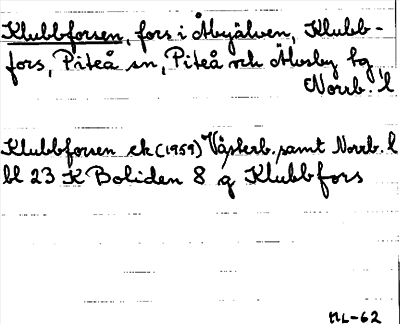 Klubbforsen, fors i Åbyälven, Klubb-
fors, Piteå sn, Piteå och Älvsby tg
Norrb. l
Klubbforsen ek (1959) Västerb. samt Norrb. l
bl 23 K Boliden 8 g Klubbfors
NL-62